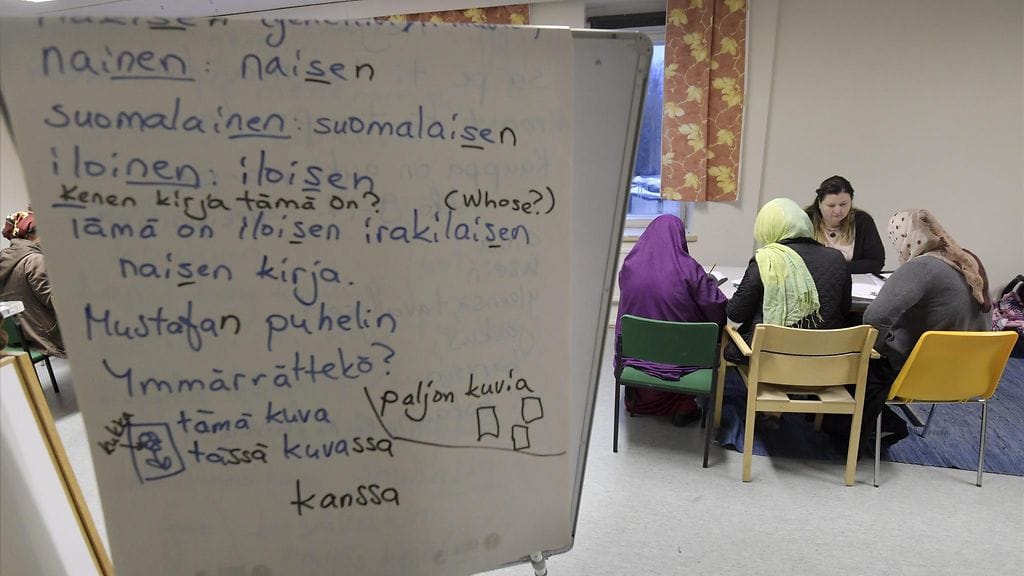 nainen : naisen
suomalainen : suomalaisen
iloinen : iloisen
Kenen kirja tämä on? (Whose?)
Tämä on iloisen irakilaisen
naisen kirja.
Mustafan puhelin
Ymmärrättekö?
paljon kuvia
tämä kuva
tässä kuvassa
kanssa